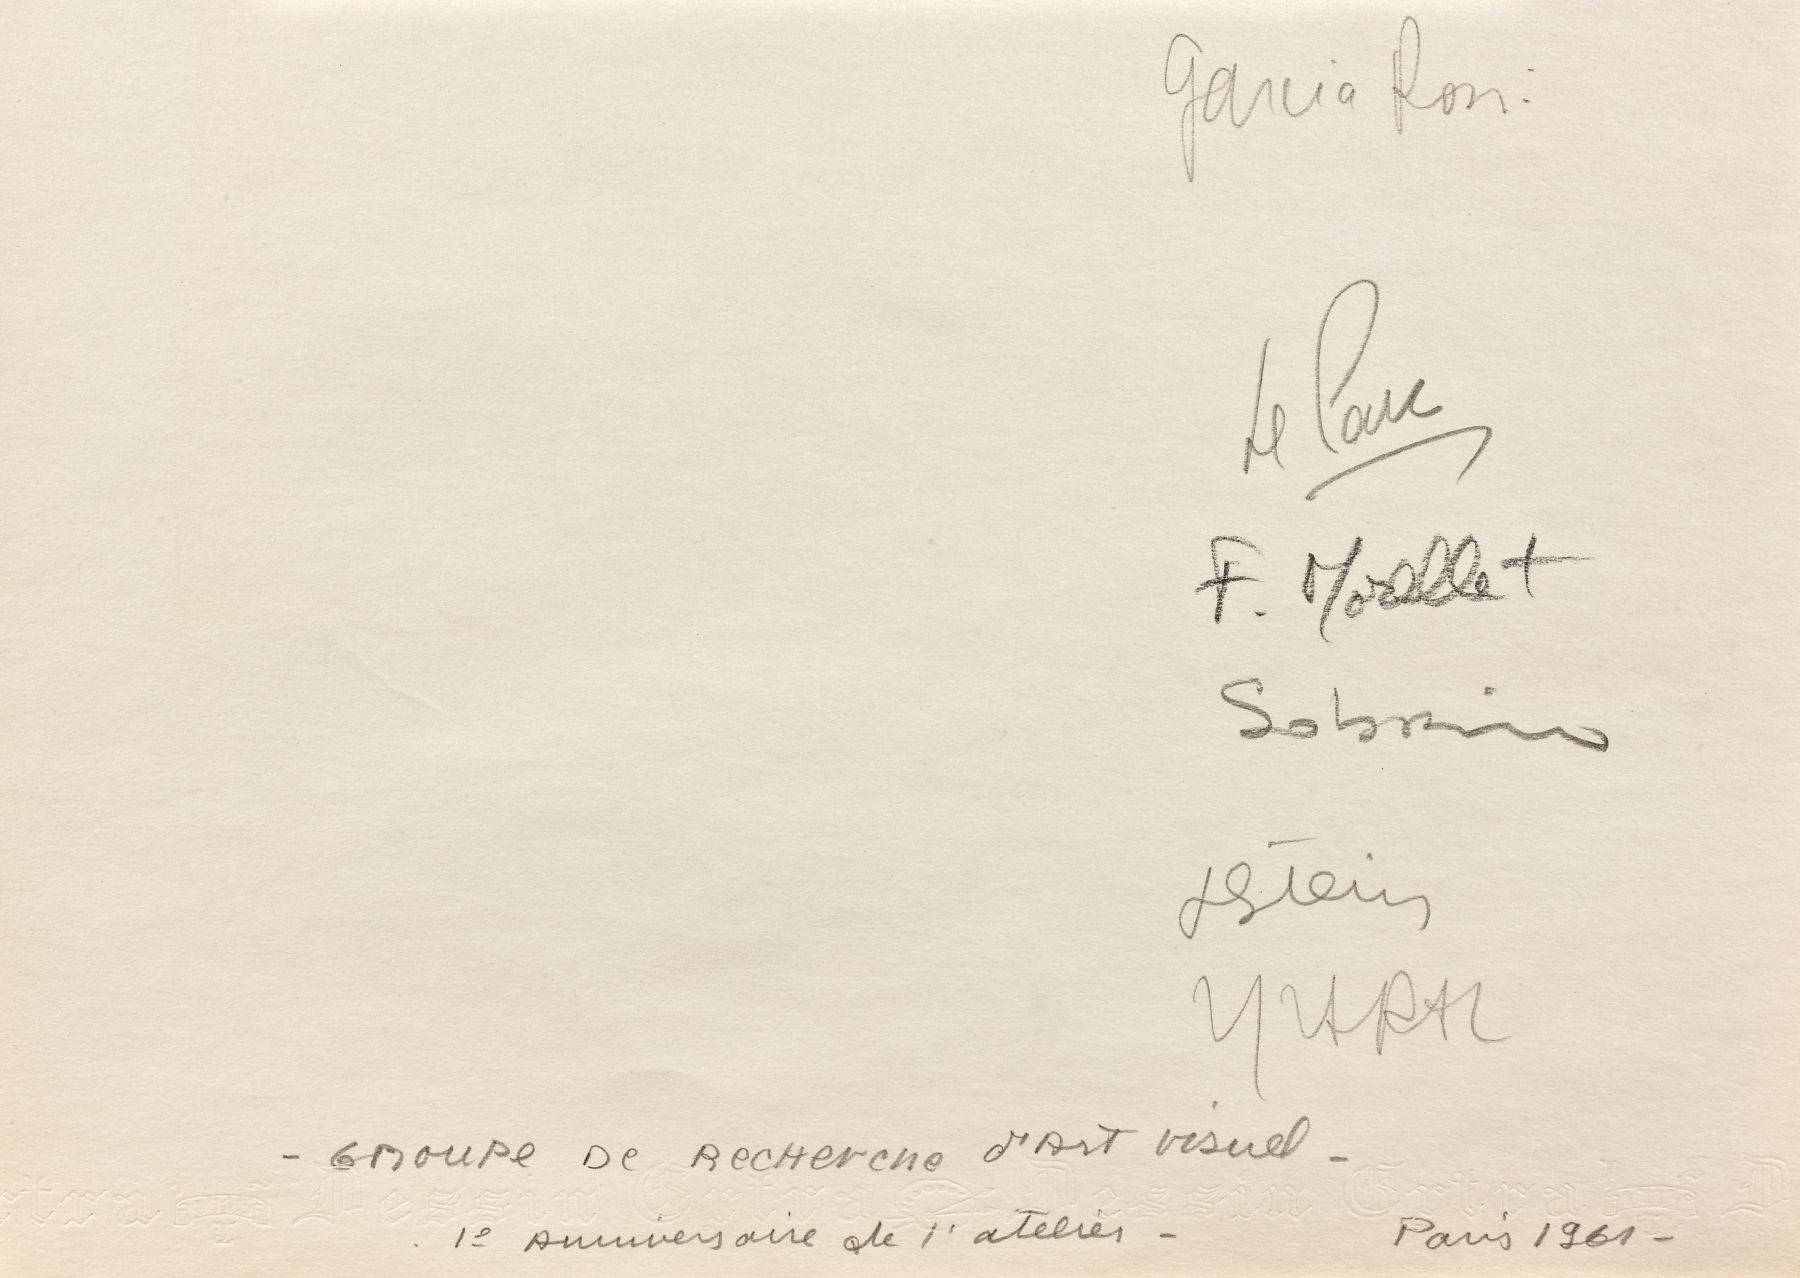 Garcia Rossi
Le Parc
F. Morellet
Sobrino
JStein
YVARAL
- GROUPE DE RECHERCHE d'ART visuel -
Dessin Extra Dessin Extra
1e Anniversaire de l'atelier - Paris 1961 -